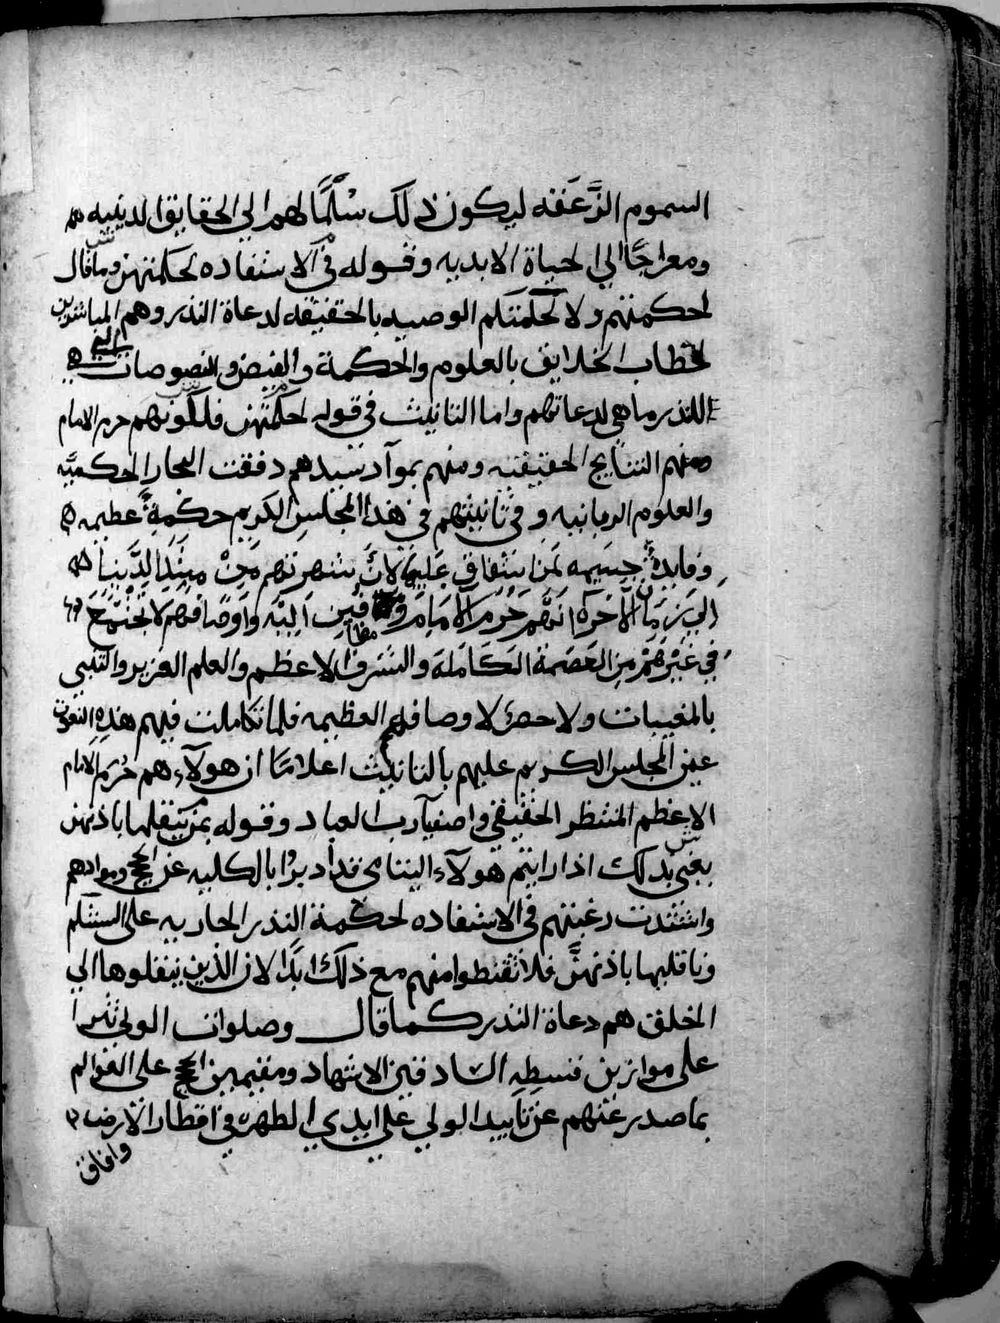 السموم الزَّعَفه ليكون ذلك سُلَّمًا لهم الي الحقايق الدينيه
ومعراجًا الي الحياة الابديه وقوله في الاستفاده لحكمتهن وما قال
لحكمتهم ولا لحكمتكم الوصيه بالحقيقه لدعاة النذر وهم المباشرين
لخطاب الخلايق بالعلوم والحكمة والفيض والنصوصات
للنذر ما هي لدعاتهم واما التانيث في قوله لحكمتهن فلكونهم حرم الامام
ومنهم النتايج الحقيقيه ومنهم بموآد سيدهم دفقت البحار الحكميَّه
والعلوم الربانيه وفي تانيثهم في هذا المجلس الكريم حكمةً عظيمه
وفايدةً جسيمه لمن استفاق عليها لانَّ شهرتهم من مبتدا الدُّنيا
الي زمان الآخره انهم حرم الامام وقرين اليه واوصافهم لا تجتمع
في غيرهم من العصمة الكامله والشرف الاعظم والعلم العزير والتنبي
بالمغيبات ولا حصر لاوصافهم العظيمه فلما تكاملت فيهم هذه النعوت
عين المجلس الكريم عليهم بالتانيث اعلامًا ان هولآء هم حريم الامام
الاعظم المنتظر الحقيقي واصفيآ رب العباد وقوله بمن ينقلها باذنهن
يعني بذلك اذا رايتم هولآء اليتامى قد ادبرُوا بالكليه عن الحج وموادهم
واشتدت رغبتهم في الاستفاده لحكمة النذر الجاريه على السنتكم
وناقليها باذنهنَّ فلا تقنطوا منهم مع ذلك ابدًا لان الذين ينقلوها الي
الخلق هم دعاة النذر كما قال وصلوات الولي تترا
على موازين قسطه السادقين الاشهاد ومقيمين الحج على العوالم
بما صدر عنهم عن تاييد الولي علي ايدي الطهره في اقطار الارض
وافاق